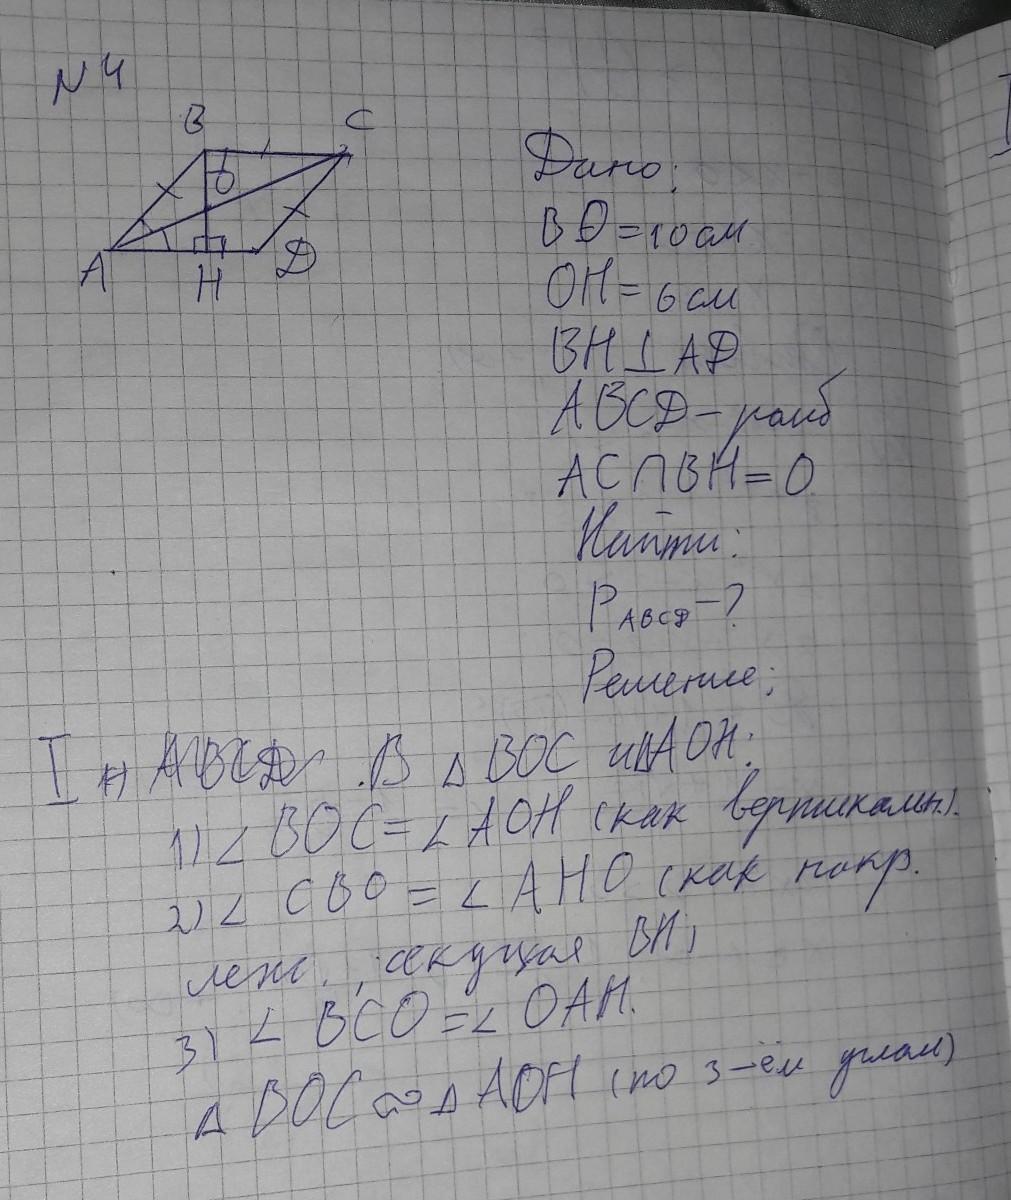 N4
B
C
O
A
H
D
Дано:
BO=10см
OH=6см
BH⊥AD
ABCD – ромб
AC∩BH=O
Найти:
P ABCD – ?
Решение:
I ABCD. В △BOC и △AOH:
1) ∠BOC=∠AOH (как вертикальн.).
2) ∠CBO=∠AHO (как накр.
леж., секущая BH;
3) ∠BCO=∠OAH.
△BOC∾△AOH (по 3-ём углам)